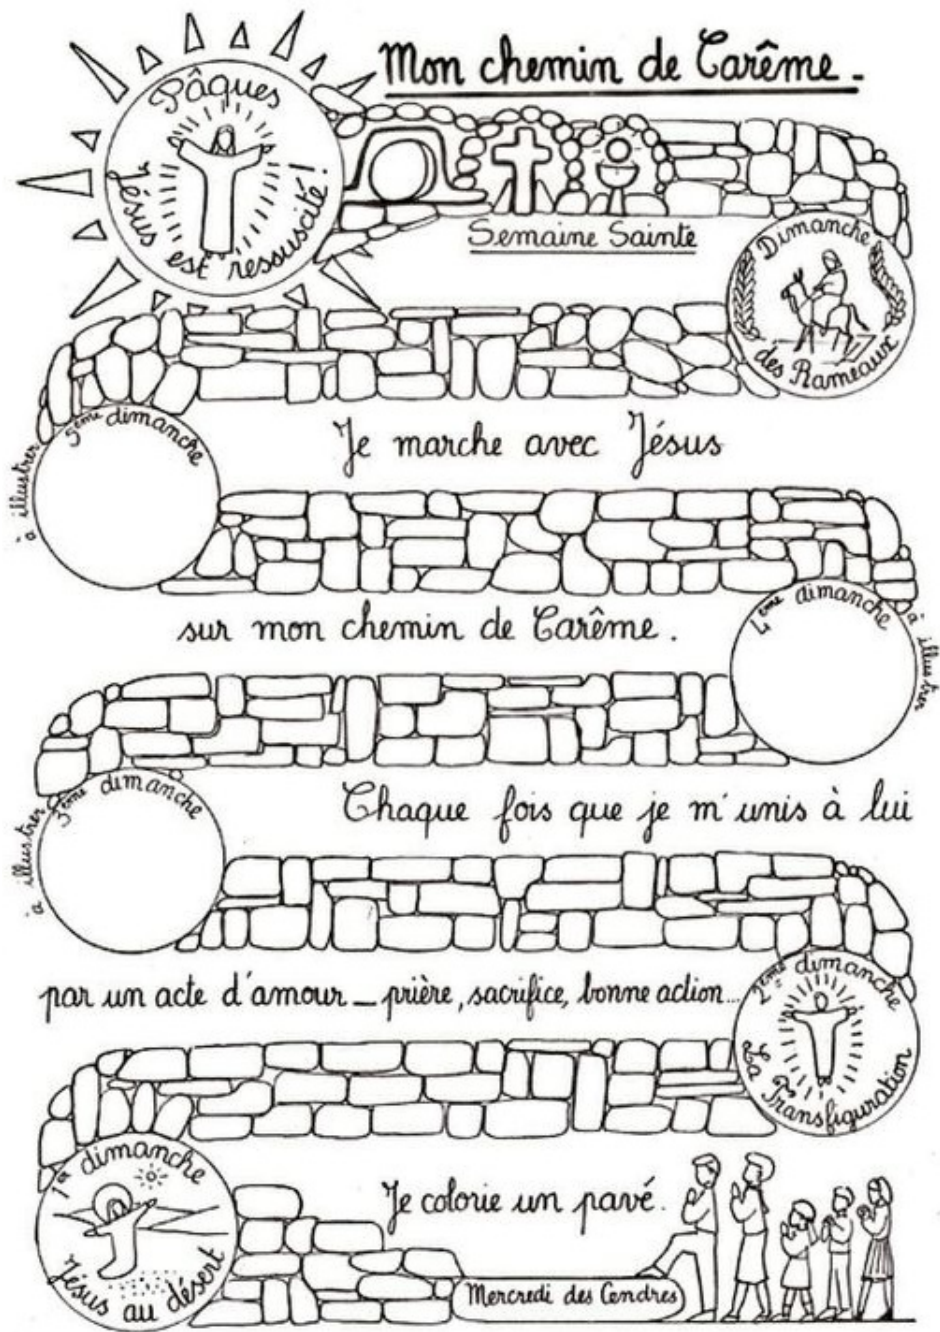 Mon chemin de Carême -
Pâques
Jésus est ressuscité !
Semaine Sainte
Dimanche
des Rameaux
5ème dimanche
à illustrer
Je marche avec Jésus
4ème dimanche
à illustrer
sur mon chemin de Carême.
3ème dimanche
à illustrer
Chaque fois que je m'unis à lui
par un acte d'amour _ prière, sacrifice, bonne action...
2ème dimanche
La Transfiguration
1er dimanche
Jésus au désert
Je colorie un pavé.
Mercredi des Cendres